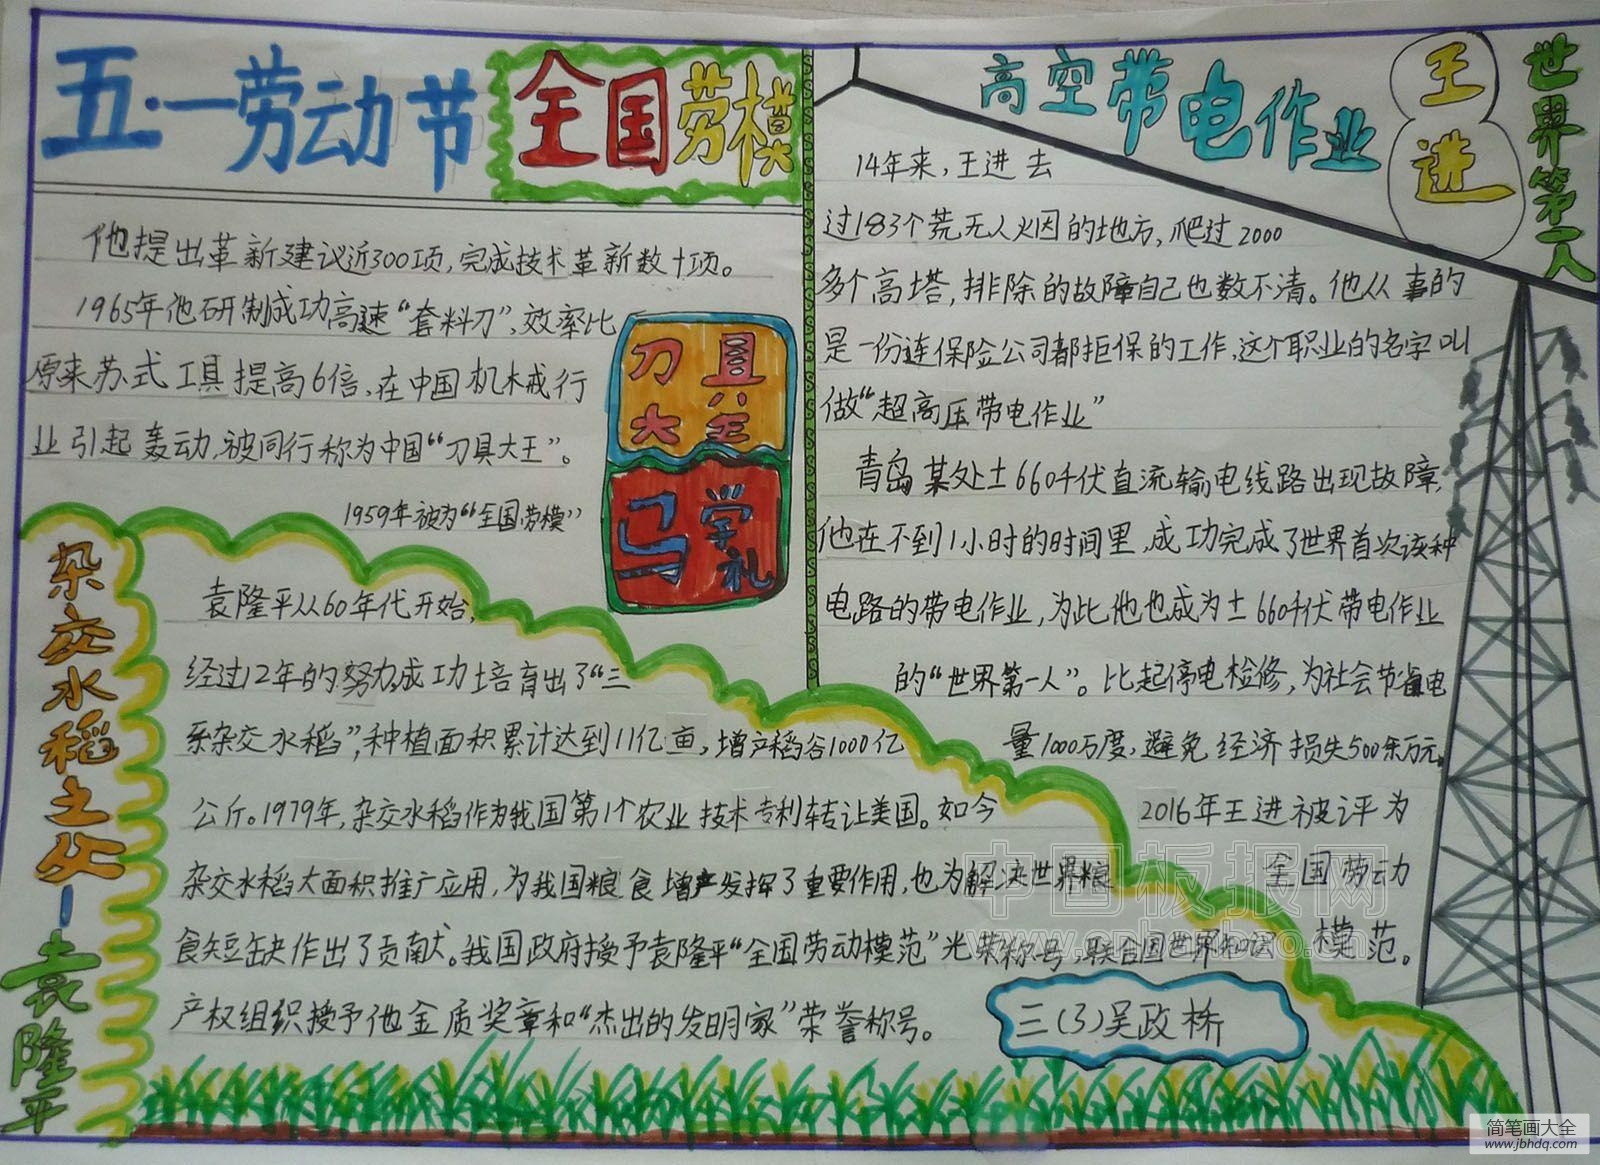 五·一劳动节
全国劳模
他提出革新建议近300项,完成技术革新数十项。
1965年他研制成功高速“套料刀”,效率比
原来苏式工具提高6倍,在中国机械行
业引起轰动,被同行称为中国“刀具大王”。
1959年被为“全国劳模”
刀具
大王
马学礼
高空带电作业
王进
世界第一人
14年来,王进去
过183个荒无人火因的地方,爬过2000
多个高塔,排除的故障自己也数不清。他从事的
是一份连保险公司都拒保的工作,这个职业的名字叫
做“超高压带电作业”
青岛某处±660千伏直流输电线路出现故障,
他在不到1小时的时间里,成功完成了世界首次该种
电路的带电作业,为此他也成为±660千伏带电作业
的“世界第一人”。比起停电检修,为社会节省电
量1000万度,避免经济损失500余万元
2016年王进被评为
全国劳动
模范。
杂交水稻之父—袁隆平
袁隆平从60年代开始,
经过12年的努力,成功培育出了“三
系杂交水稻”,种植面积累计达到11亿亩,增产稻谷1000亿
公斤。1979年,杂交水稻作为我国第1个农业技术专利转让美国。如今
杂交水稻大面积推广应用,为我国粮食增产发挥了重要作用,也为解决世界粮
食短缺作出了贡献。我国政府授予袁隆平“全国劳动模范”光荣称号,联合国世界知识
产权组织授予他金质奖章和“杰出的发明家”荣誉称号。
三(3)吴政桥
中国板报网
www.cnbnbao.cn
简笔画大全
www.jbhdq.com